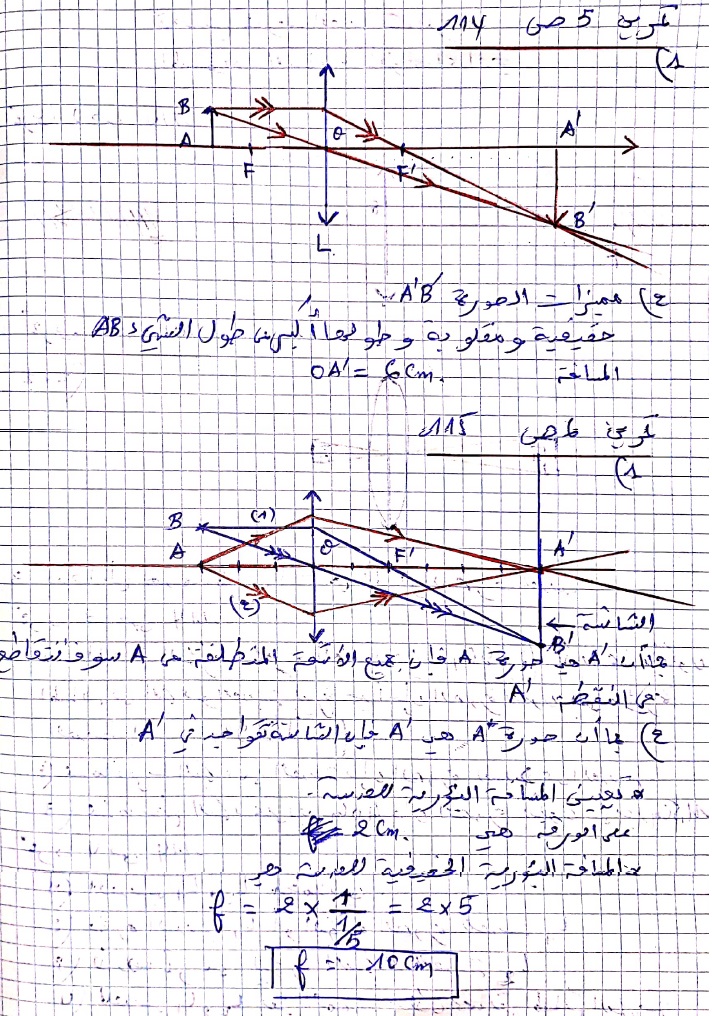 تمرين 5 ص 114
1)
B
A
F
O
F'
A'
B'
L
2) مميزات الصورة A'B'
حقيقية ومقلوبة وطولها أكبر من طول الشيء AB
المسافة OA' = 6 Cm.
تمرين ص 115
1)
B
(1)
A
O
F'
A'
(2)
الشاشة
B'
بما أن A' هي صورة A فإن جميع الأشعة المنطلقة من A سوف تتقاطع
في النقطة A'
2) بما أن صورة A هي A' فإن الشاشة تتواجد في A'
* تعيين المسافة البؤرية للعدسة.
على الورقة هي 2 Cm.
* المسافة البؤرية الحقيقية للعدسة هي
f = 2 × 1/(1/5) = 2 × 5
f = 10 Cm